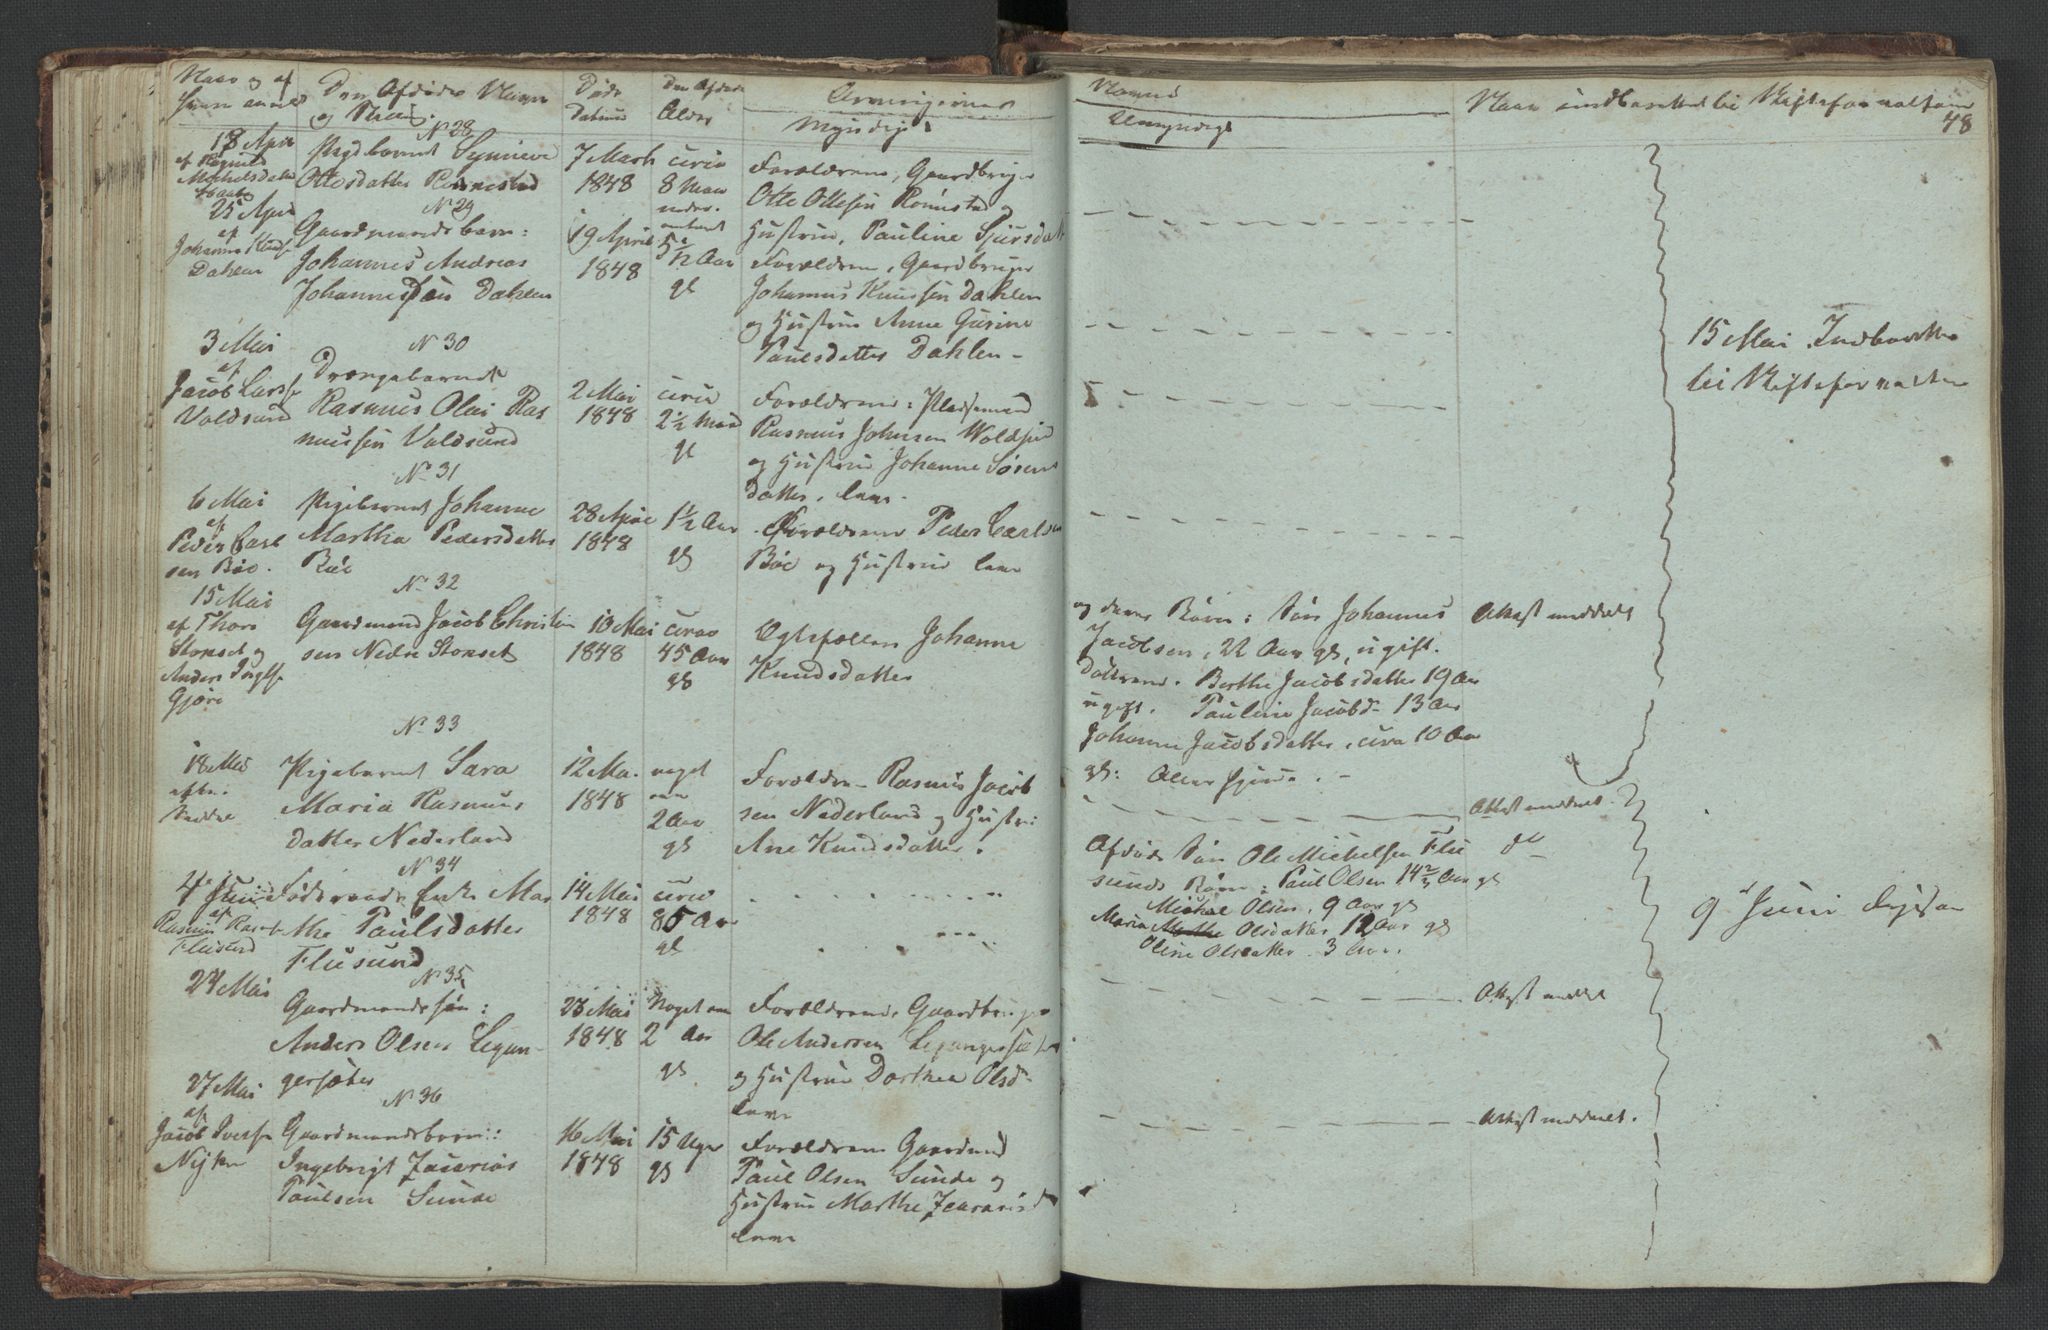 Naar og af
hvem anmeldt
Den Afdødes Navn
og Stand.
Døds
Datum
Den Afdødes
Alder
Arvingernes
Myndige
Navne
Umyndige
Naar indberettet til Skifteforvalteren
48
18 April
af
N 28
Pigebarnet Synneve
Ottosdatter Rønnestad
7 Marts
1848
circa
8 Maan
Forældrene, Gaardbruger
Otte Ottesen Rønnestad og
Hustrue, Pauline Sjursdatter
25 April
af
Johannes Knudsen
Dahlen
N 29
Gaardmandsbarn:
Johannes Andreas
Johannessen Dahlen
19 April
1848
omtrent
5 1/2 Aar
gl
Forældrene, Gaardbruger
Johannes Knudsen Dahlen
og Hustrue Anne Gurine
Paulsdatter Dahlen -
3 Mai
af
Jacob Larsen
Voldsund
N 30
Drengebarnet
Rasmus Olai Ras
mussen Voldsund
2 Mai
1848
circa
2 1/2 Maan
gl
Forældrene: Pladsemand
Rasmus Johnsen Woldsund
og Hustrue Johanne Sørens
datter. leve.
15 Mai Indberettet
til Skifteforvalteren
6 Mai
af
Peder Carl
sen Bøe.
N 31
Pigebarnet Johanne
Martha Pedersdatter
Bøe
28 April
1848
1 1/2 Aar
gl
Forældrene Peder Carlsen
Bøe og Hustrue leve
15 Mai
af Thore
Stonset og
Anders
Gjøre
N 32
Gaardmand Jacob Christen
sen Nedre Stonset
10 Mai
1848
circa
45 Aar
gl
Egtefællen Johanne
Knudsdatter
og deres Børn: Søn Johannes
Jacobsen, 22 Aar gl, ugift.
Døttrene. Berthe Jacobsdatter 19 Aar
ugift. Pauline Jacobsd- 13 Aar
Johanne Jacobsdatter, circa 10 Aar
gl:
Attest meddelt
18 Mai
N 33
Pigebarnet Sara
Maria Rasmus
datter Nederland
12 Ma.
1848
noget
over
2 Aar
gl
Forældre- Rasmus Jacob
sen Nederland og Hustru:
Ane Knudsdatter.
Attest meddelt.
4 Juni
af
Rasmus
Flusund
N 34
Føderaads Enke Mar
the Paulsdatter
Flusund
14 Mai
1848
circa
85 Aar
gl
Afdøde Søn Ole Michelsen Flu
sunds Børn: Paul Olsen 14 Aar gl
Michael Olsen. 9 Aar gl
Maria Olsdatter 12 Aar gl
Oline Olsdatter. 3 Aar.
do
9 Juni
24 Mai
N 35
Gaardmandssøn:
Anders Olsen Legan-
gersæter
23 Mai
1848
Noget over
2 Aar
gl
Forældrene, Gaardbruger
Ole Andersen Legangersæter
og Hustrue Dorthea Olsd-
leve
Attest meddelt
27 Mai
af
Jacob Iversen
N 36
Gaardmandsbarn:
Ingebrigt Zacarias
Paulsen Sunde
16 Mai
1848
15 Uger
gl
Forældrene Gaardmand
Paul Olsen Sunde og
Hustrue Marthe Zacariasd
leve
Attest meddelt.